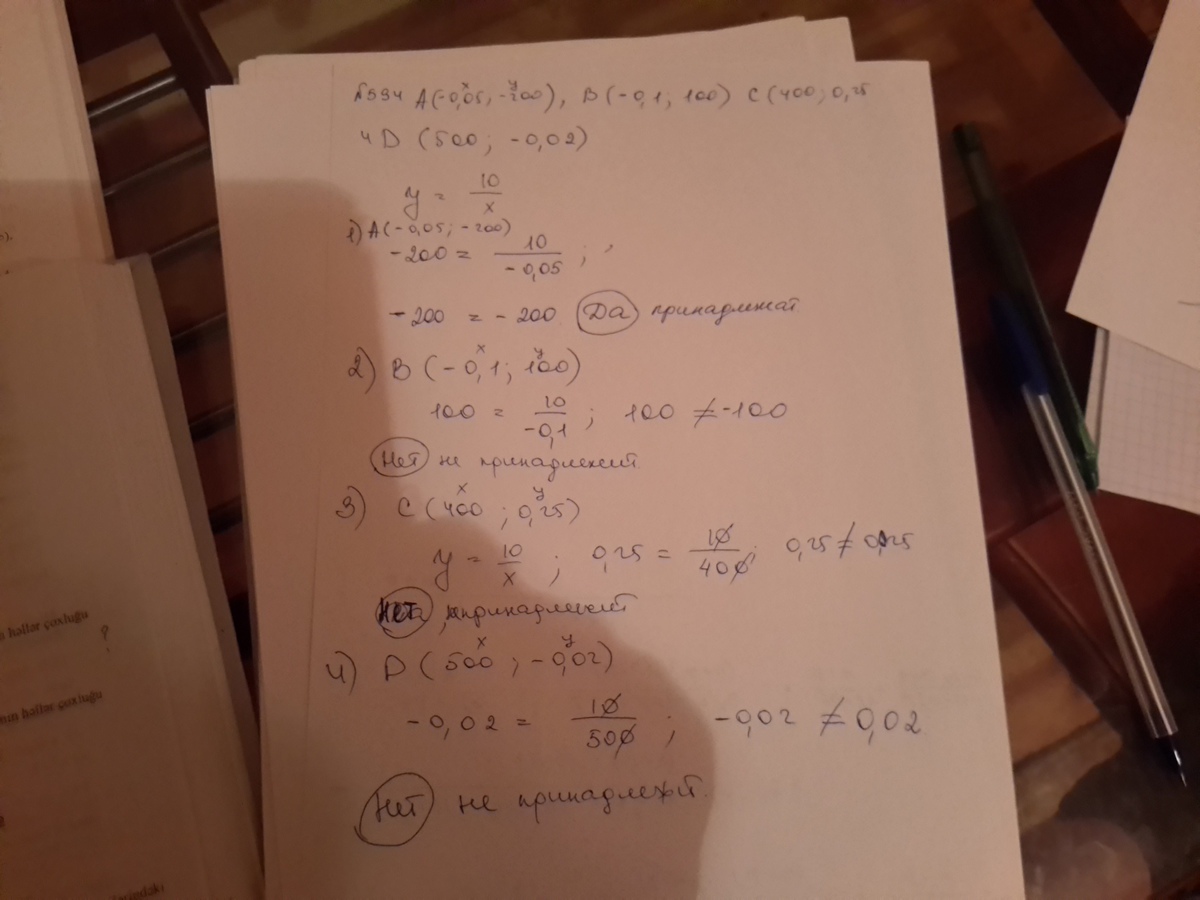 №994 A(-0,05; -200), B(-0,1; 100) C(400; 0,25
x y
4D (500; -0,02)
y = 10/x
1) A(-0,05; -200)
-200 = 10/-0,05 ;
-200 = -200 Да принадлежат
2) B(-0,1; 100)
x y
100 = 10/-0,1 ; 100 ≠ -100
Нет не принадлежит.
3) C(400; 0,25)
x y
y = 10/x ; 0,25 = 10/400 ; 0,25 ≠ 0,025
Нет принадлежит
4) D(500; -0,02)
x y
-0,02 = 10/500 ; -0,02 ≠ 0,02
Нет не принадлежит.
həllər çoxluğu
?
nın həllər çoxluğu